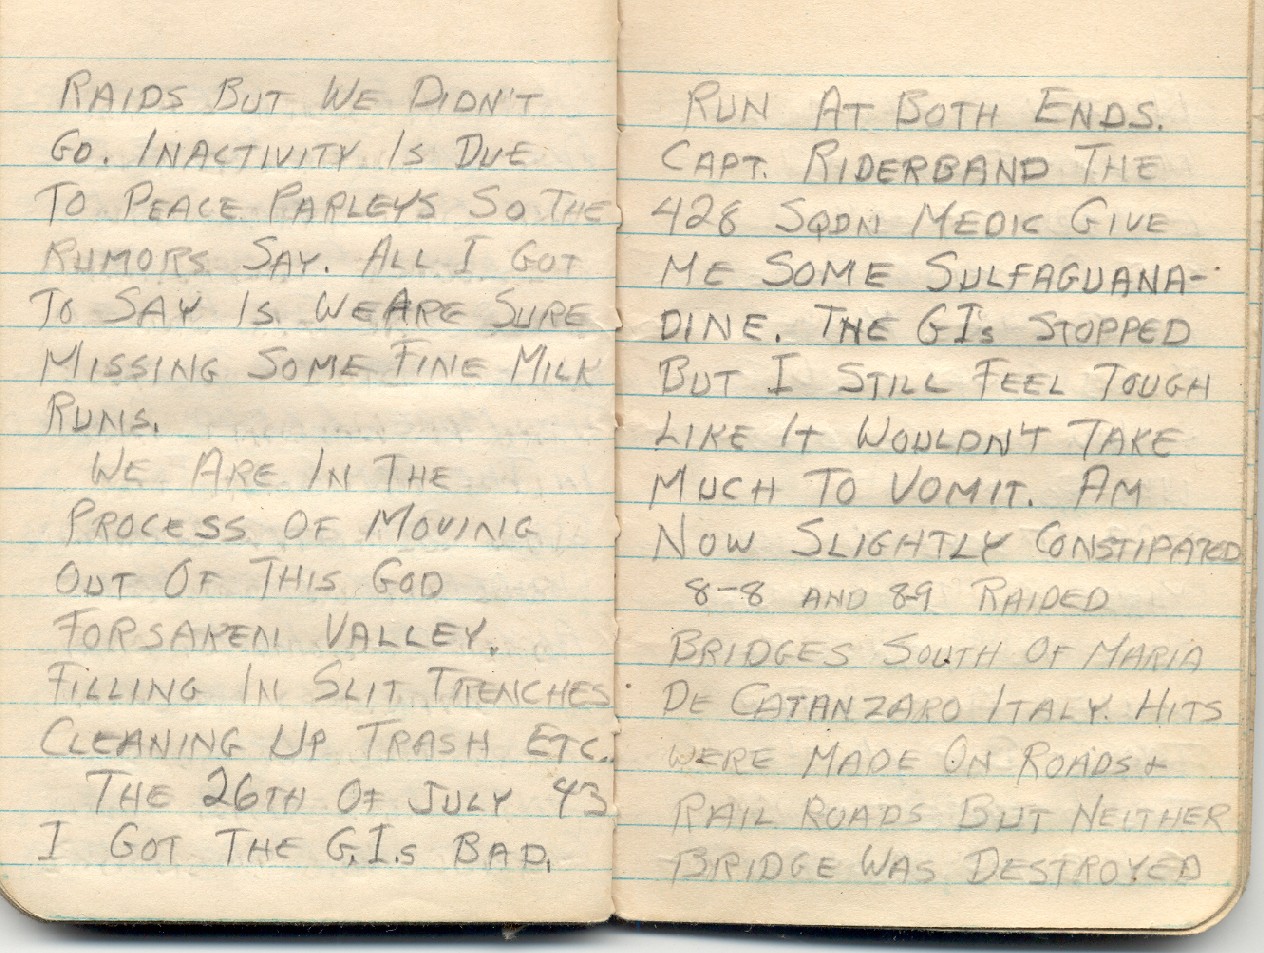 RAIDS BUT WE DIDN'T
GO. INACTIVITY IS DUE
TO PEACE PARLEYS SO THE
RUMORS SAY. ALL I GOT
TO SAY IS WE ARE SURE
MISSING SOME FINE MILK
RUNS.
WE ARE IN THE
PROCESS OF MOVING
OUT OF THIS GOD
FORSAKEN VALLEY.
FILLING IN SLIT TRENCHES
CLEANING UP TRASH ETC.
THE 26TH OF JULY 43
I GOT THE G.I.s BAD.
RUN AT BOTH ENDS.
CAPT. RIDERBAND THE
428 SQDN MEDIC GIVE
ME SOME SULFAGUANA-
DINE. THE GIs STOPPED
BUT I STILL FEEL TOUGH
LIKE IT WOULDN'T TAKE
MUCH TO VOMIT. AM
NOW SLIGHTLY CONSTIPATED
8-8 AND 8-9 RAIDED
BRIDGES SOUTH OF MARIA
DE CATANZARO ITALY. HITS
WERE MADE ON ROADS &
RAIL ROADS BUT NEITHER
BRIDGE WAS DESTROYED